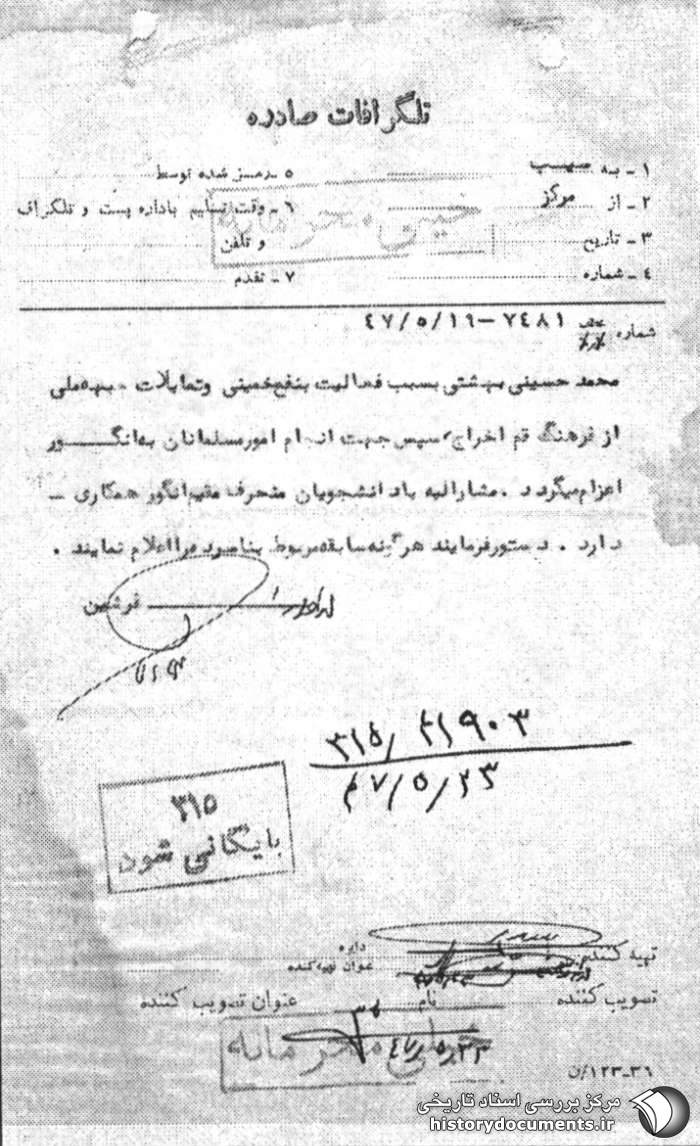 تلگرافات صادره
۱ - به سهیب
۵ - رمز شده توسط
۲ - از مرکز
۶ - وقت تسلیم باداره پست و تلگراف
خیلی محرمانه
۳ - تاریخ
و تلفن
۴ - شماره
۷ - تقدم
شماره ۷٤۸۱ - ٤۷/٥/۱٦
محمد حسینی بهشتی بسبب فعالیت بنفع خمینی وتمایلات جبهه ملی
از فرهنگ قم اخراج سپس جهت انجام امور مسلمانان به انگور
اعزام میگردد . مشارالیه با دانشجویان منحرف مقیم انگور همکاری -
دارد . دستور فرمایند هرگونه سابقه مربوط بنامبرده را اعلام نمایند .
فرشین
۳۱۵/۲۱۹۰۳
۴۷/۵/۲۳
۳۱۵
بایگانی شود
تهیه کننده
دایره
عنوان تهیه کننده
تصویب کننده
نام
عنوان تصویب کننده
خیلی محرمانه
۴۷/۵/۲۳
۳۶-۱۲۳/ن
مرکز بررسی اسناد تاریخی
historydocuments.ir